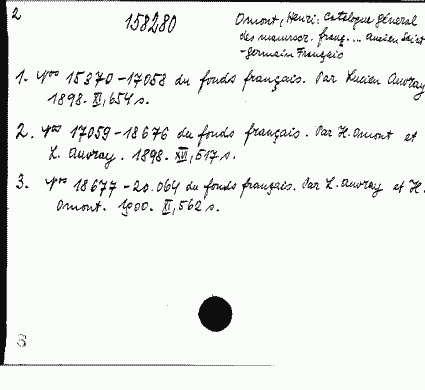 2
158280
Omont, Henri: Catalogue général
des manuscr. franç. ... ancien Saint
-Germain Français
1. Nos 15370-17058 du fonds français. Par Lucien Auvray
1898. XI, 654 s.
2. Nos 17059-18676 du fonds français. Par H. Omont et
L. Auvray. 1898. XVI, 517 s.
3. Nos 18677-20.064 du fonds français. Par L. Auvray et H.
Omont. 1900. XI, 562 s.